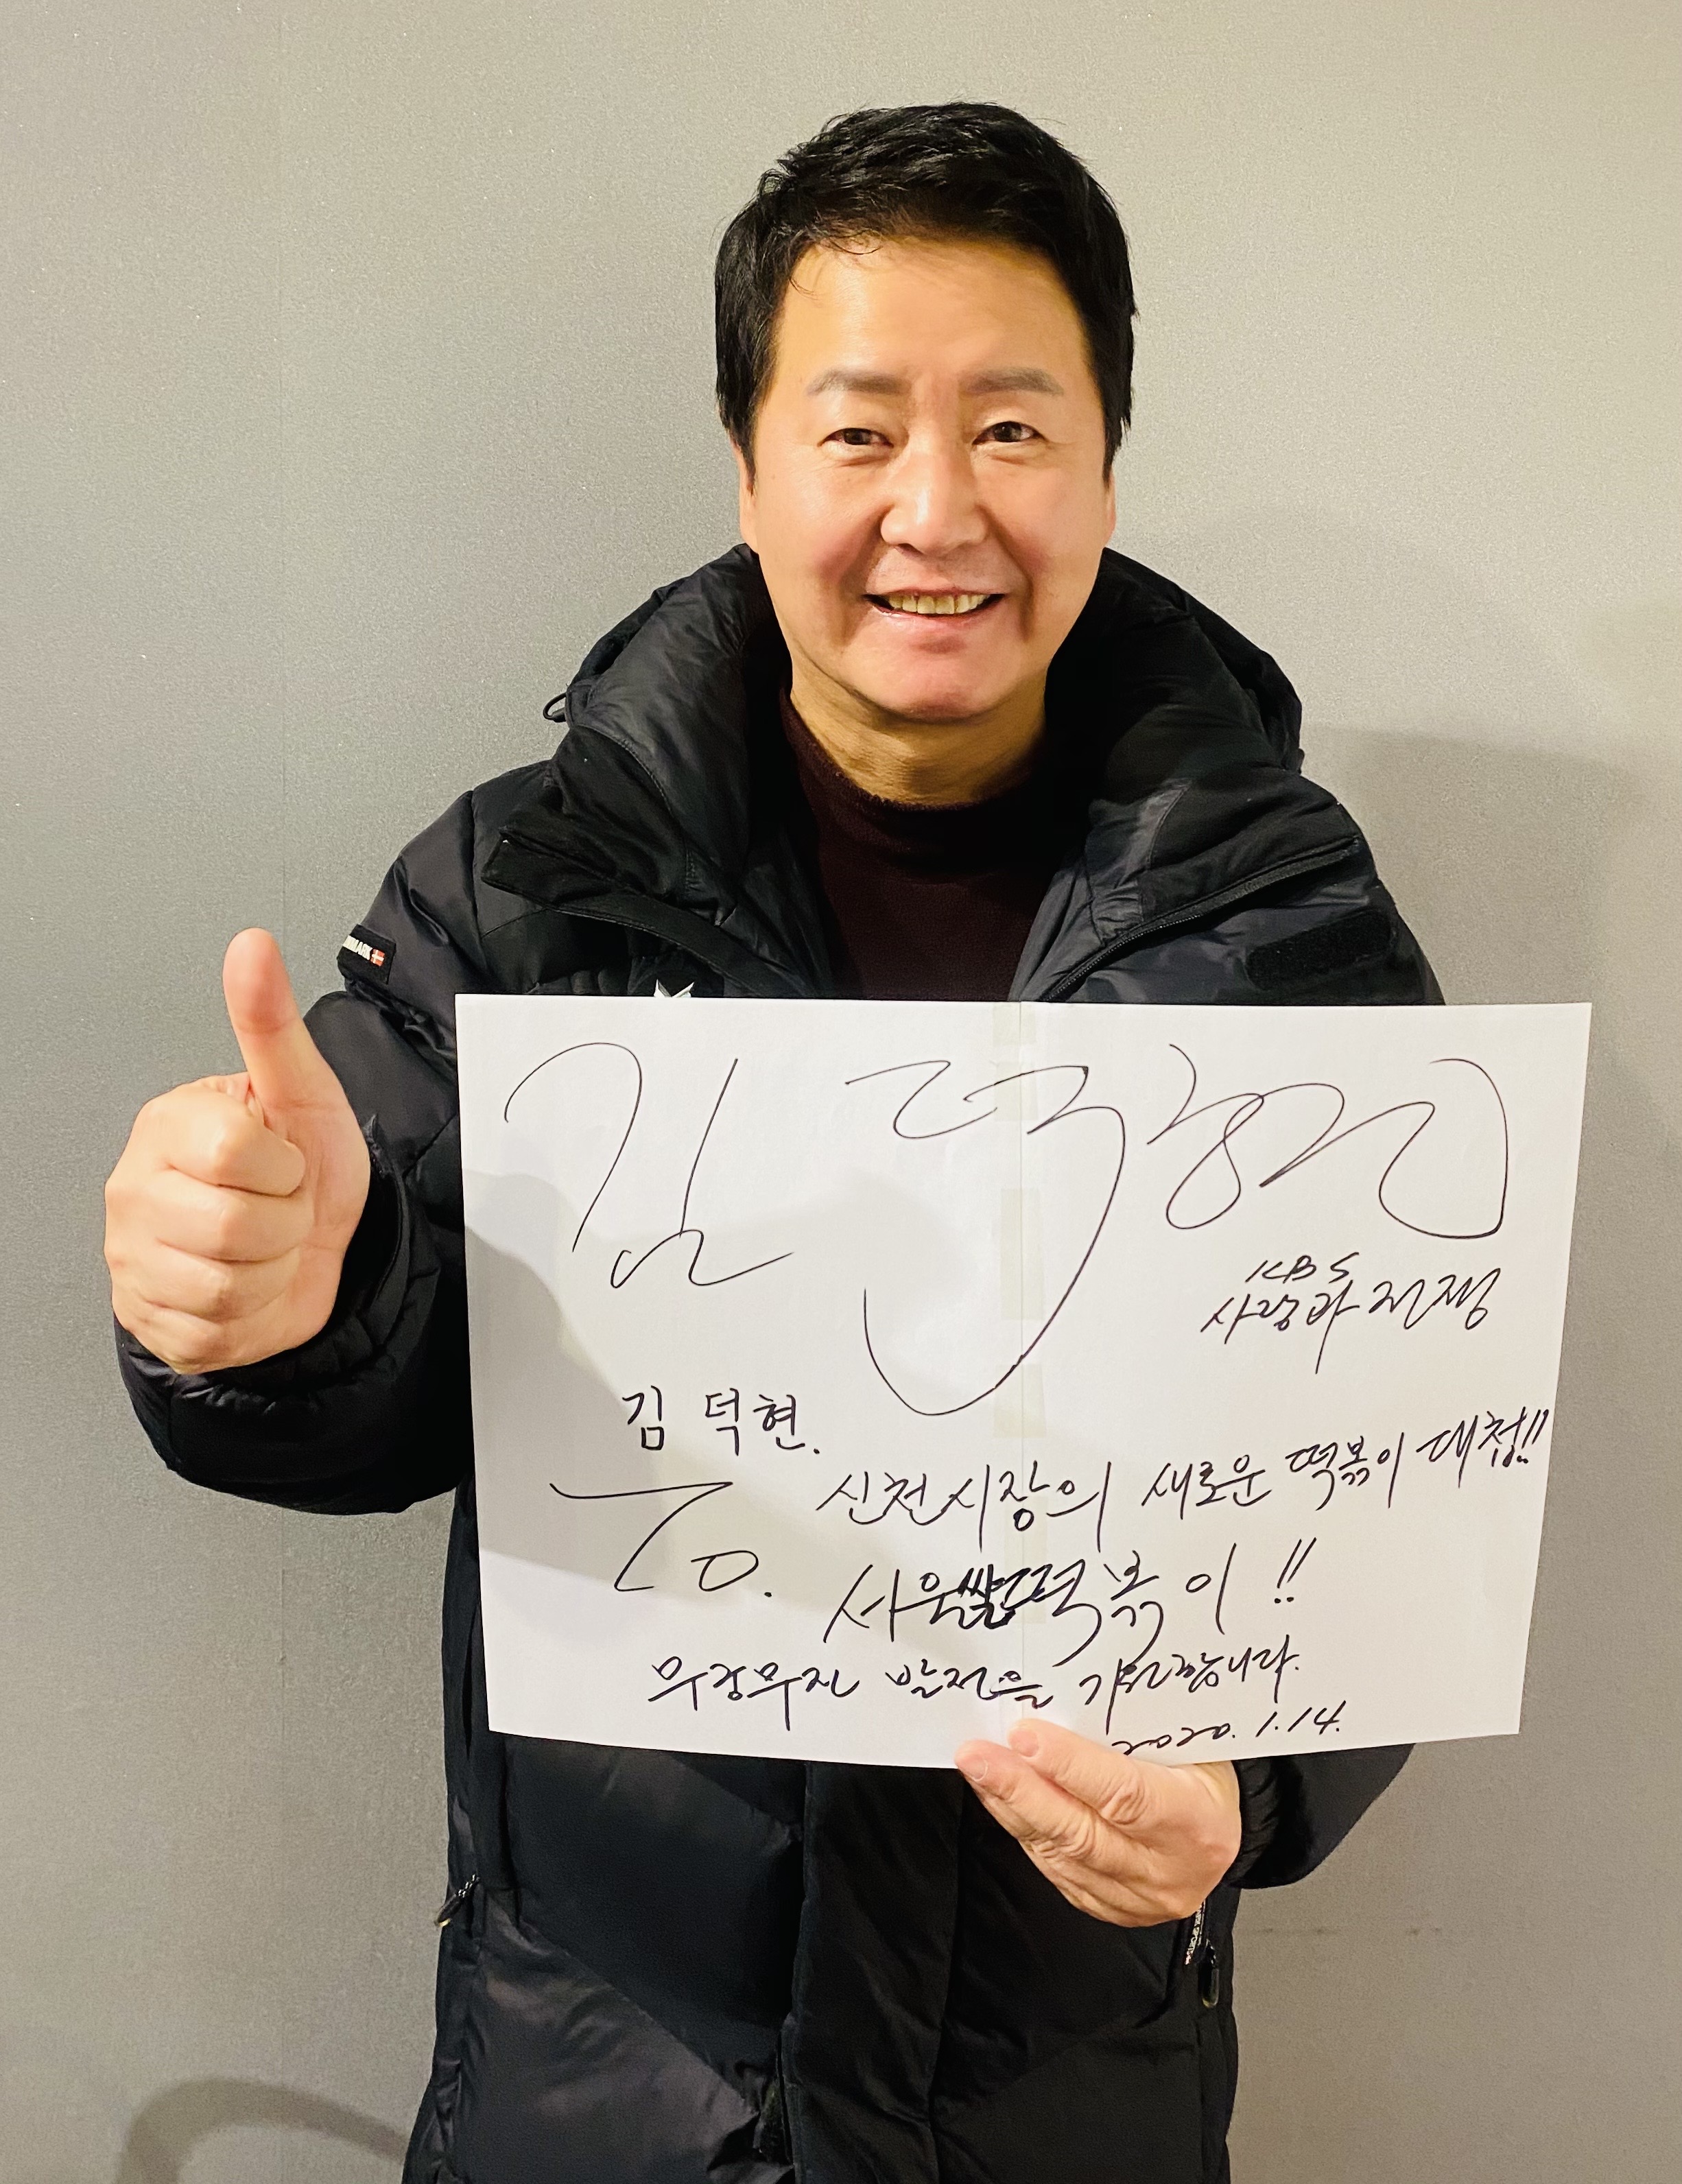 김덕현
KBS
사랑과 전쟁
김덕현.
신천시장의 새로운 떡볶이 대첩!!
서울쌀떡볶이!!
무궁무진 발전을 기원합니다.
2020. 1. 14.